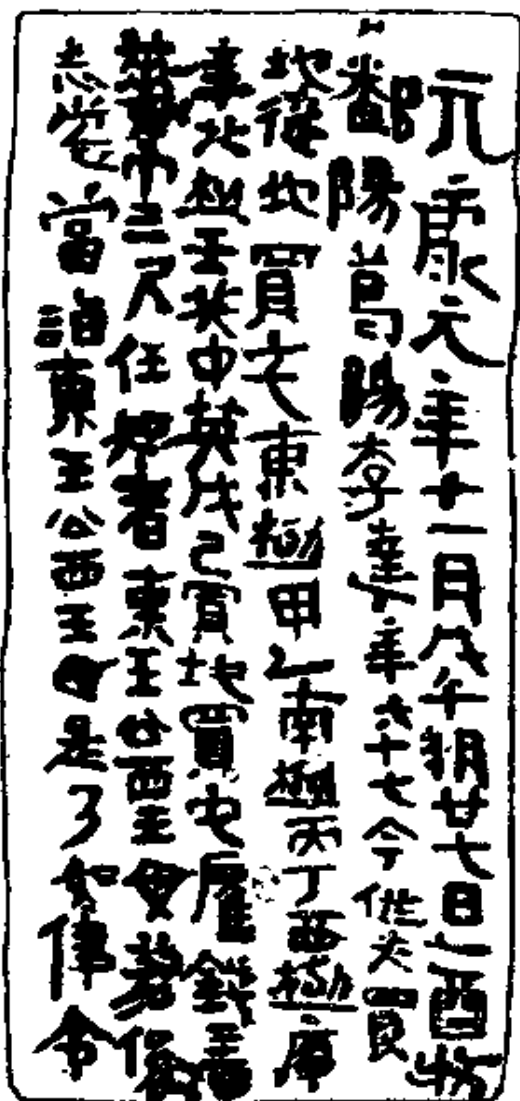 元康元年十一月戊午朔廿七日乙酉收
鄱陽葛陽李達年六十七今從天買
地從地買宅東極甲乙南極丙丁西極庚
辛北極壬癸中英戊己買地買宅雇錢三百
華巾三尺任知者東王公西王母若後
志宅當詣東王公西王母是了如律令